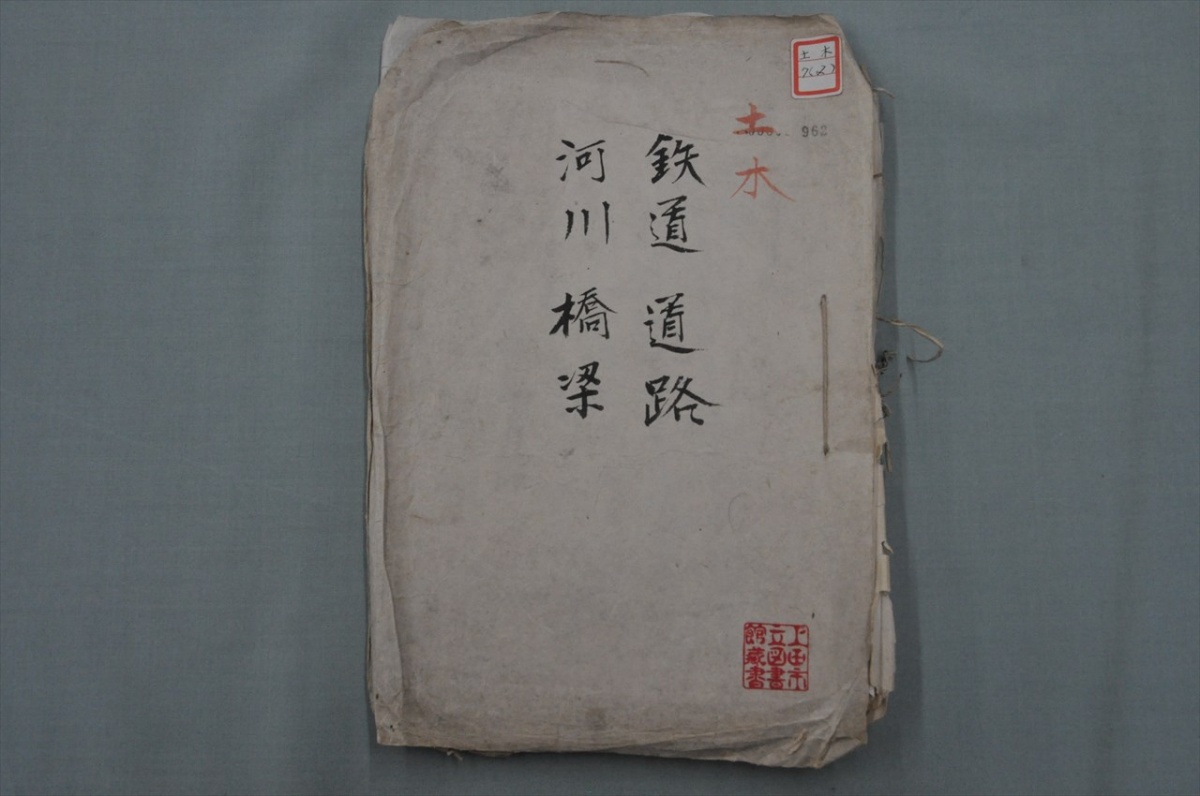 土木
7(2)
土木
962
鉄道 道路
河川 橋梁
上田市
立図書
館蔵書